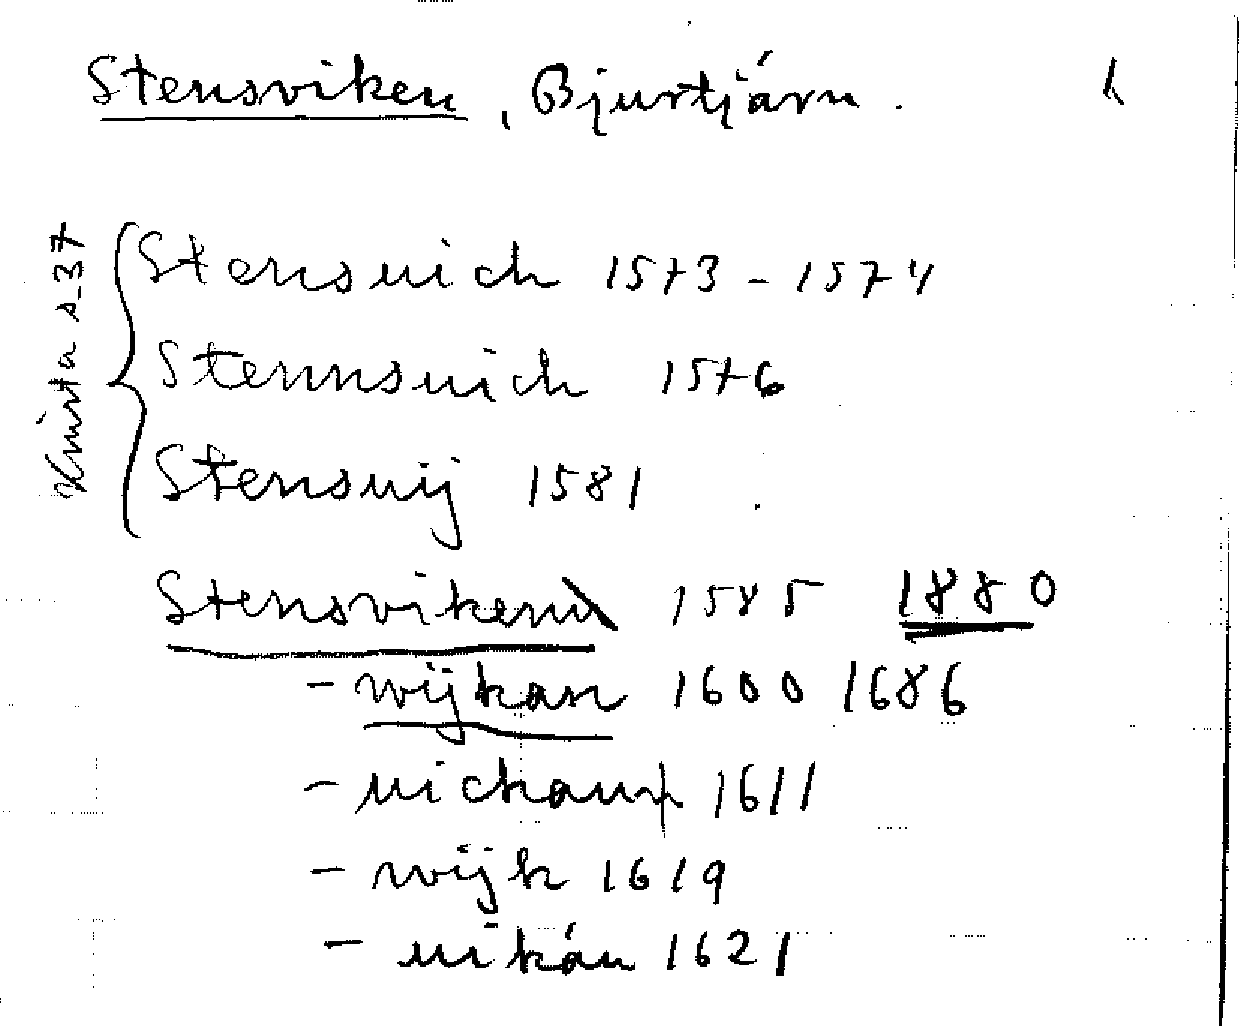 Stensviken, Bjurtjärn.
Stensuich 1573-1574
Stennsuich 1576
Stensuij 1581
Stensviken 1585 1880
- wijkan 1600 1686
- uichann 1611
- wijk 1619
- uikán 1621